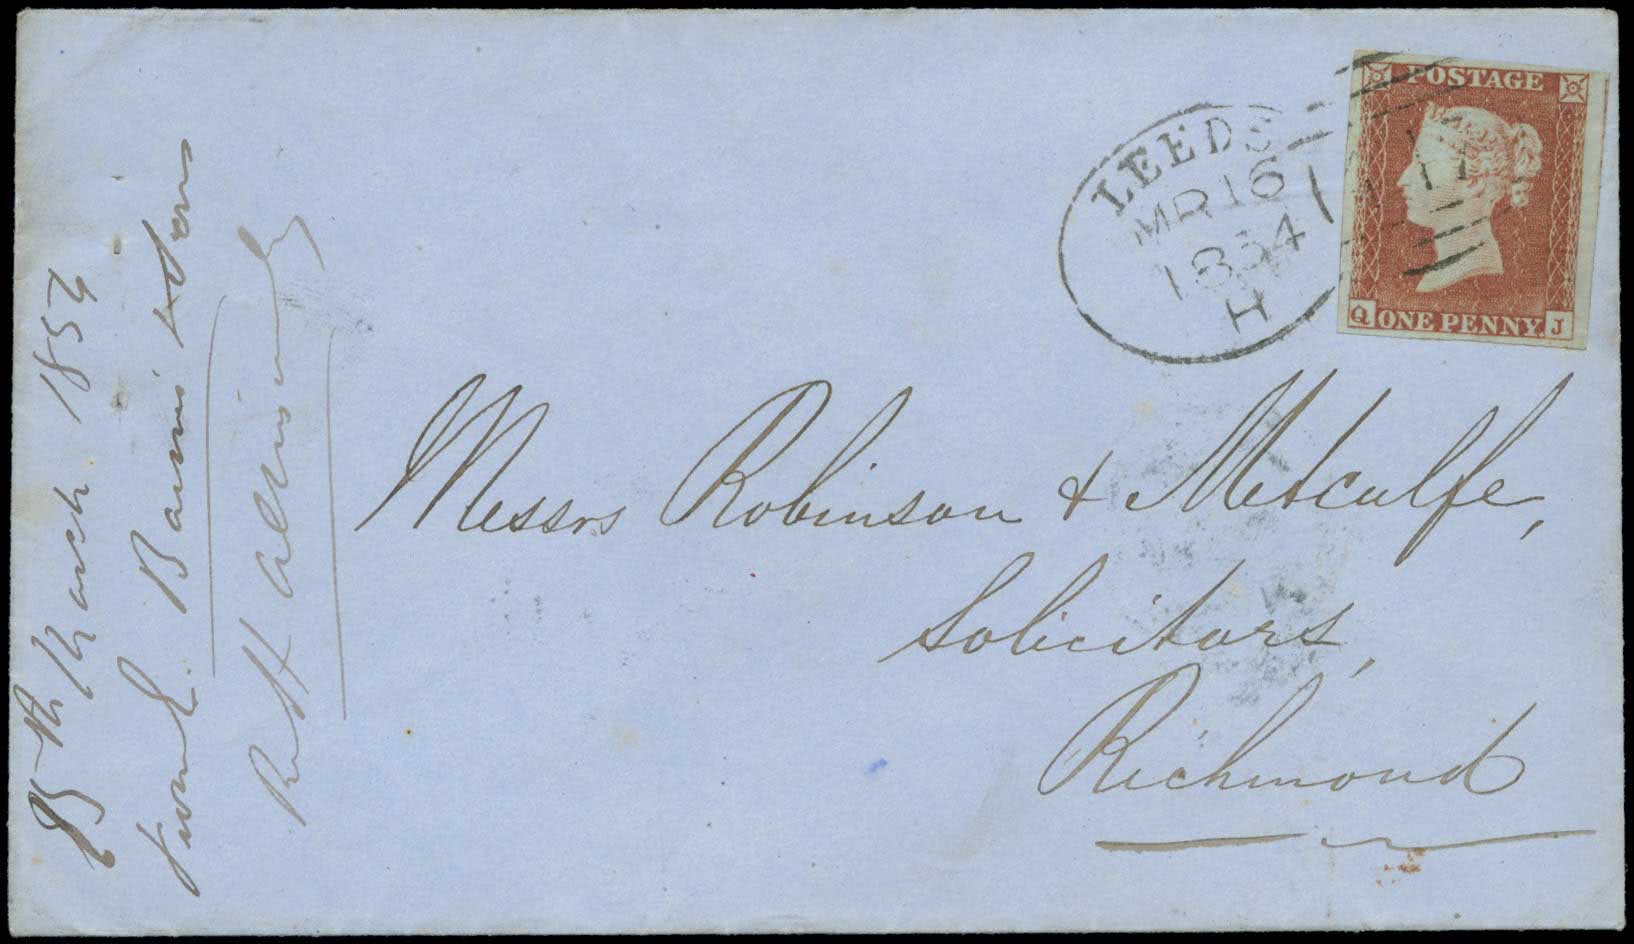 POSTAGE
Q ONE PENNY. J
LEEDS
MR 16
1854
H
Messrs Robinson & Metcalfe,
Solicitors,
Richmond
15th March 1854
from E.
Re